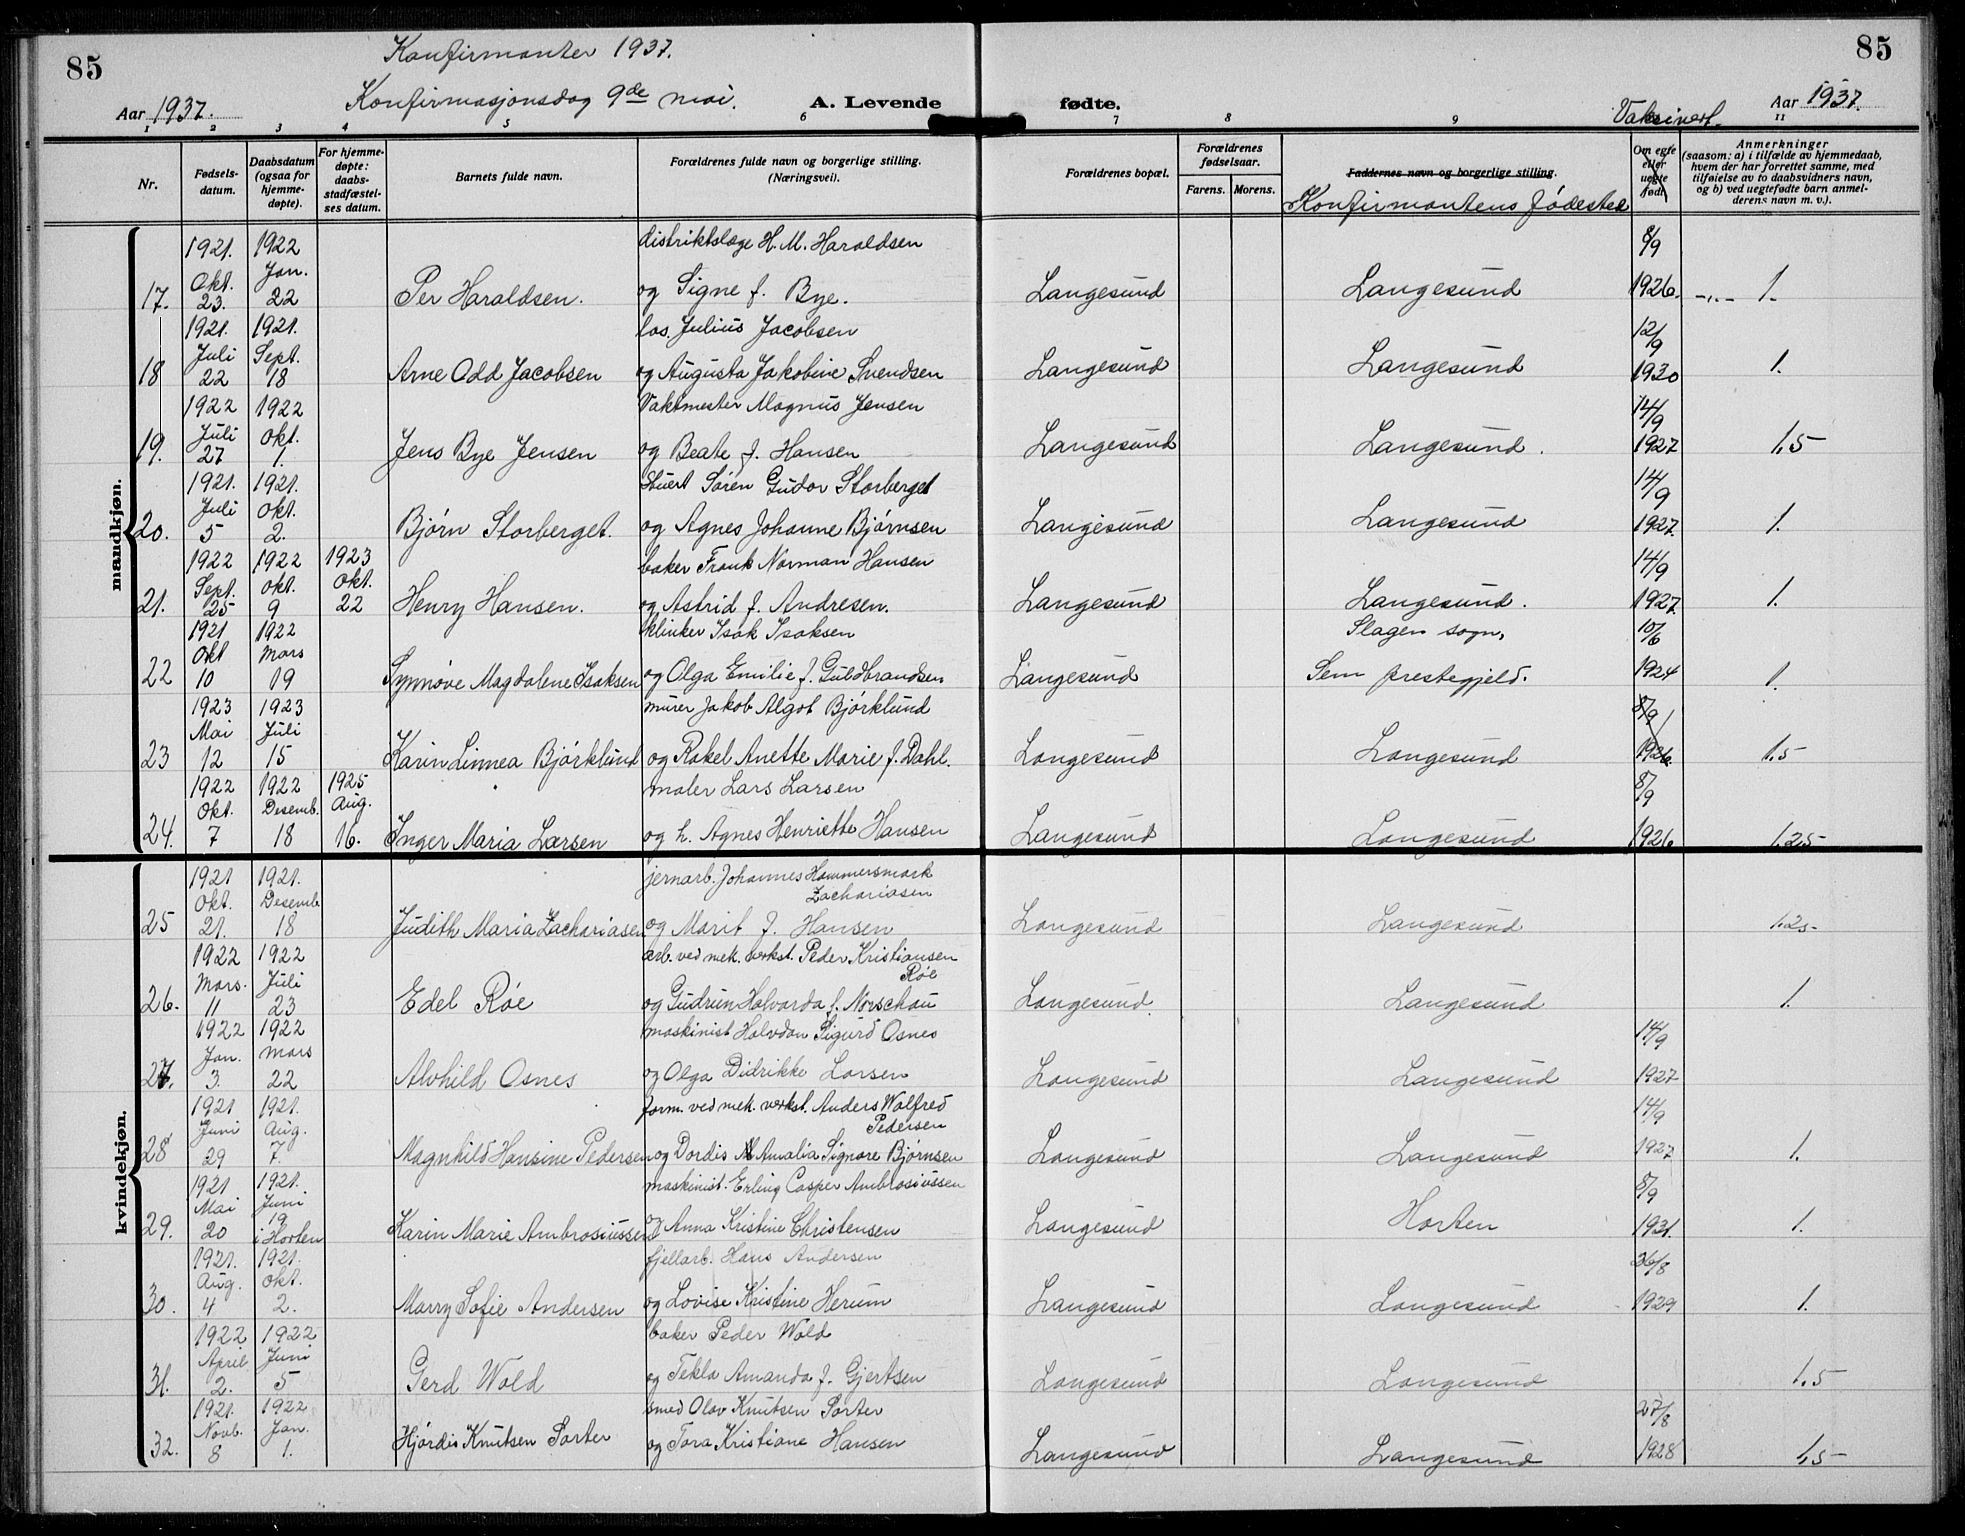 85
85
Konfirmanter 1937.
Aar 1937.
Konfirmasjonsdag 9de mai.
A. Levende
fødte.
Aar 1937.
1 2 3 4 5 6 7 8 9 11
Vaksinert.
Nr.
Fødsels-
datum.
Daabsdatum
(ogsaa for
hjemme-
døpte).
For hjemme-
døpte:
daabs-
stadfæstel-
ses datum.
Barnets fulde navn.
Forældrenes fulde navn og borgerlige stilling.
(Næringsvei).
Forældrenes bopæl.
Forældrenes
fødselsaar.
Farens.
Morens.
Faddernes navn og borgerlige stilling.
Konfirmantens fødested
Om egte
eller
uegte
født
Anmerkninger
(saasom: a) i tilfælde av hjemmedaab,
hvem der har forrettet samme, med
tilføielse av to daabsvidners navn,
og b) ved uegtefødte barn anmel-
derens navn m. v.).
mandkjøn.
1921. 1922 distriktslæge H. M. Haraldsen 8/9
Okt. Jan.
17. 23. 22 Per Haraldsen. og Signe f. Bye. Langesund Langesund 1926. -„- 1.
1921. 1921. los. Julius Jacobsen 12/9
Juli Sept.
18 22 18 Arne Odd Jacobsen og Augusta Jakobine Svendsen Langesund Langesund 1930 1.
1922 1922 Vaktmester Magnus Jensen 14/9
Juli Okt.
19. 27 1. Jens Bye Jensen og Beate f. Hansen Langesund Langesund. 1927 1,5
1921. 1921. Stuert Sören Gudor Storberget 14/9
Juli Okt.
20. 5 2. Bjørn Storberget. og Agnes Johanne Bjørnsen Langesund Langesund 1927. 1.
1922 1922 1923 baker Frank Norman Hansen 14/9
Sept. Okt. Okt.
21. 25 9 22 Henry Hansen. og Astrid f. Andresen. Langesund Langesund. 1927. 1.
1921 1922 klinker Isak Isaksen Slagen sogn, 10/6
Okt Mars
22 10 19 Synnøve Magdalene Isaksen og Olga Emilie f. Guldbrandsen Langesund Sem prestegjeld. 1924 1.
1923 1923 murer Jakob Algot Björklund 8/9
Mai Juli
23 12 15 Karin Linnea Björklund og Rakel Anette Marie f. Dahl. Langesund Langesund 1926. 1,5
1922 1922 1925 maler Lars Larsen 8/9
Okt. Desemb. Aug.
24. 7 18 16. Inger Maria Larsen og h. Agnes Henriette Hansen Langesund Langesund 1926 1.25
kvindekjøn.
1921 1921. jernarb. Johannes Hammersmark
Okt. Desemb. Zachariasen
25 21. 18 Judith Maria Zachariasen og Marit f. Hansen Langesund Langesund 1.25
1922 1922 arb. ved mek. verkst. Peder Kristiansen
Mars. Juli Røe
26. 11 23 Edel Røe og Gudrun Halvarda f. Norschau Langesund. Langesund 1.
1922 1922 maskinist Halvdan Sigurd Osnes 14/9
Jan. Mars
27. 3. 22 Alvhild Osnes og Olga Didrikke Larsen Langesund Langesund 1927
1921 1921. form. ved mek. verkst. Anders Walfred 14/9
Juni Aug. Pedersen
28 29 7. Magnhild Hansine Pedersen og Dordis Amalia Signore Bjørnsen Langesund Langesund 1927 1.
1921 1921. maskinist. Erling Casper Ambrosiussen 8/9
Mai Juni
19
29. 20 i Horten Karin Marie Ambrosiussen og Anna Kristine Christensen Langesund Horten 1931. 1.
1921. 1921. fjellarb. Hans Andersen 26/8
Aug. Okt.
30. 4 2. Marry Sofie Andersen og Lovise Kristine Herum Langesund Langesund 1929 1.
1922 1922 baker Peder Wold
April Juni
31. 2. 5 Gerd Wold og Tekla Amanda f. Gjertsen Langesund Langesund 1,5
1921. 1922 smed Olav Knutsen Sorter 27/8
Novb. Jan.
32. 8 1. Hjördis Knutsen Sorter og Tora Kristiane Hansen Langesund Langesund 1928 1,5